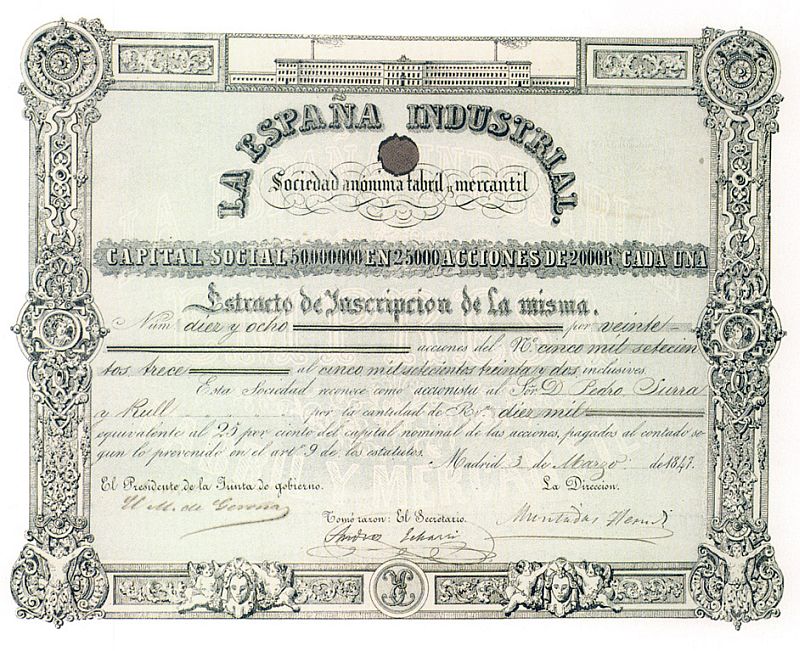 LA ESPAÑA INDUSTRIAL,
Sociedad anónima fabril y mercantil
CAPITAL SOCIAL 50.000000 EN 25000 ACCIONES DE 2000R. CADA UNA
Estracto de Inscripcion de la misma.
Núm diez y ocho por veinte
acciones del Nº. cinco mil setecien
tos trece al cinco mil setecientos treinta y dos inclusives.
Esta Sociedad reconoce como accionista al Sor. D. Pedro Turra
y Rull por la cantidad de Rvn. diez mil
equivalente al 25 por ciento del capital nominal de las acciones, pagados al contado se-
gun lo prevenido en el artº 9 de los estatutos.
Madrid 3 de Marzo de 1847.
El Presidente de la Junta de gobierno. La Direccion.
El M. de Gerona
Tomó razon: El Secretario.
Muntadas Herms